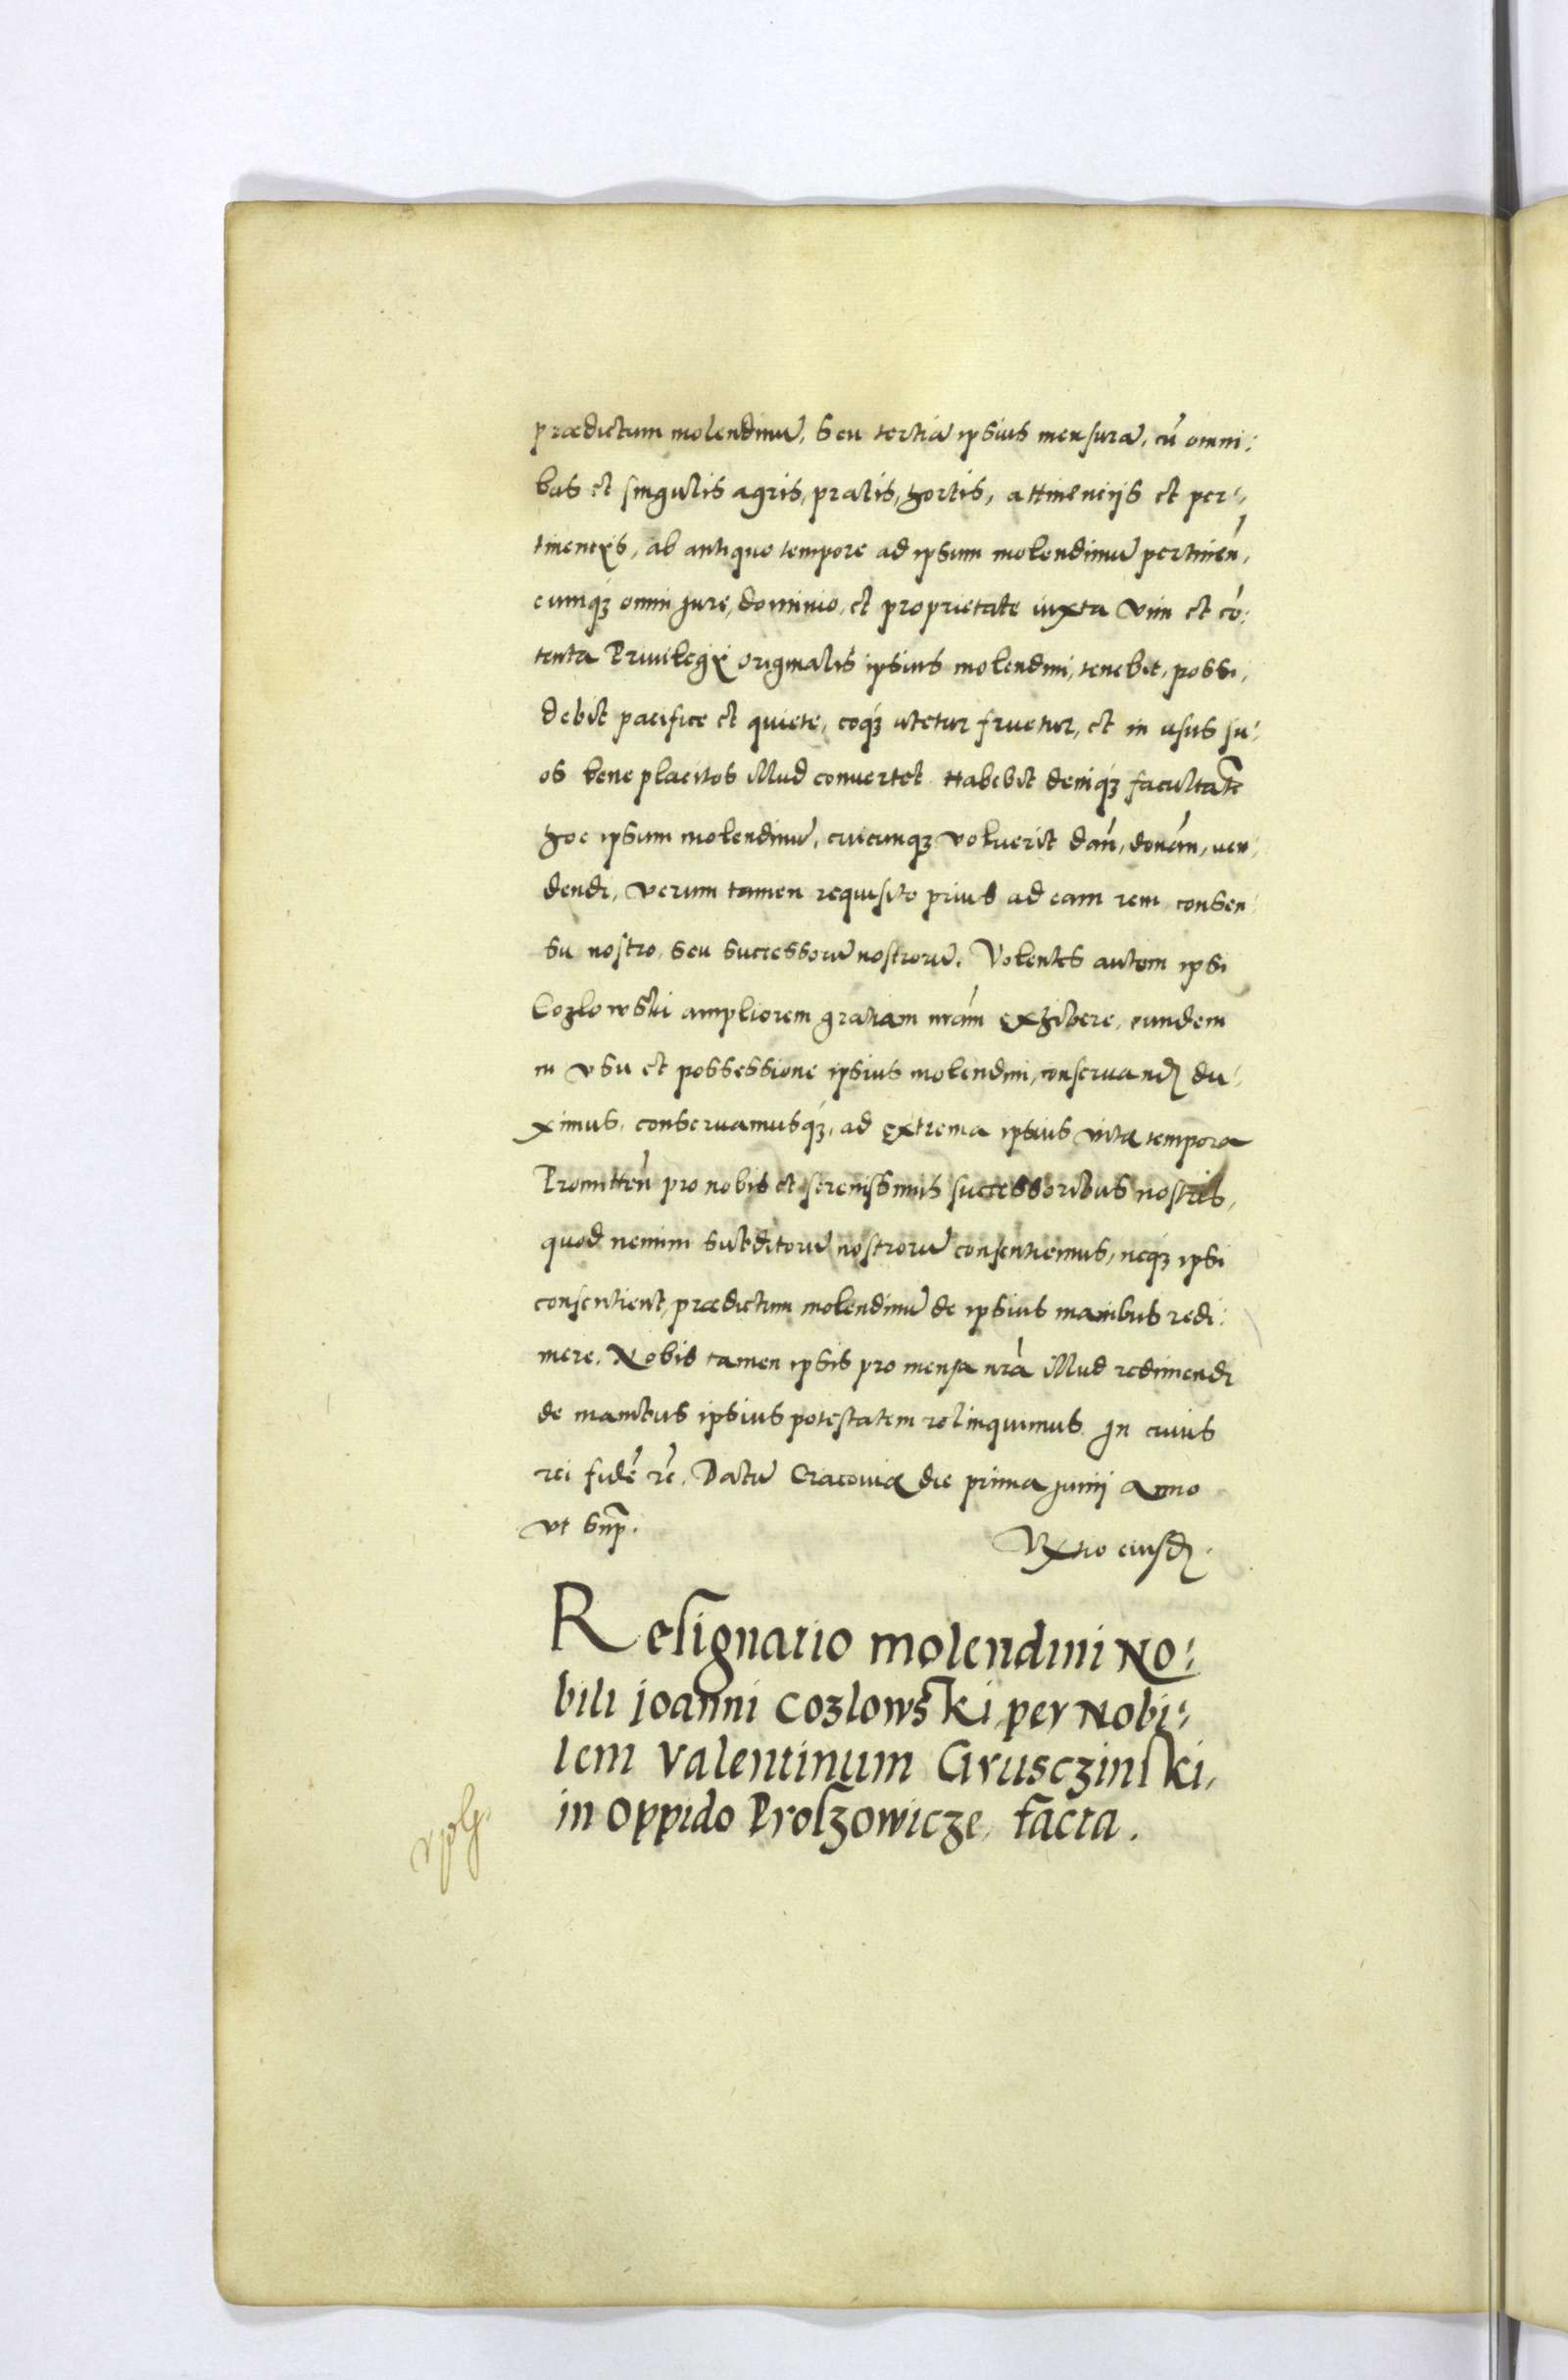 prædictum molendinū, seu tertiā ipsius mensurā, cū omni:
bus et singulis agris, pratis, hortis, attinencijs et per:
tinencijs, ab antiquo tempore ad ipsum molendinū pertineń,
cumqȝ omni jure, dominio, et proprietate iuxta vim et cō:
tenta Priuilegij originalis ipsius molendini, tenebit, possi,
debit pacifice et quiete, eoqȝ utetur fruetur, et in usus su:
os bene placitos illud conuertet. Habebit deniqȝ facultatē
hoc ipsum molendinū, cuicunqȝ voluerit dań, donań, ven:
dendi, verum tamen requisito prius ad eam rem consen:
su nostro, seu successorū nostrorū. Volentes autem ipsi
Cozlowski ampliorem gratiam nrām exhibere, eundem
in vsu et possessione ipsius molendini, conseruand du:
ximus, conseruamusqȝ, ad extrema ipsius vitæ tempora
Promitteń pro nobis et serenissimis successoribus nostris,
quod nemini subditorū nostrorū consentiemus, neqȝ ipsi
consentient, prædictum molendinū de ipsius manibus redi:
mere. Nobis tamen ipsis pro mensa nrā illud redimendi
de manibus ipsius potestatem relinquimus. In cuius
rei fidē rc̄. Datū Cracouiæ die prima Junij Anno
vt sup̄.
Rxtio eiusd.
Resignatio molendini No:
bili Joanni Cozlowski, per Nobi:
lem Valentinum Grusczinski,
in oppido Proszowicze, facta.